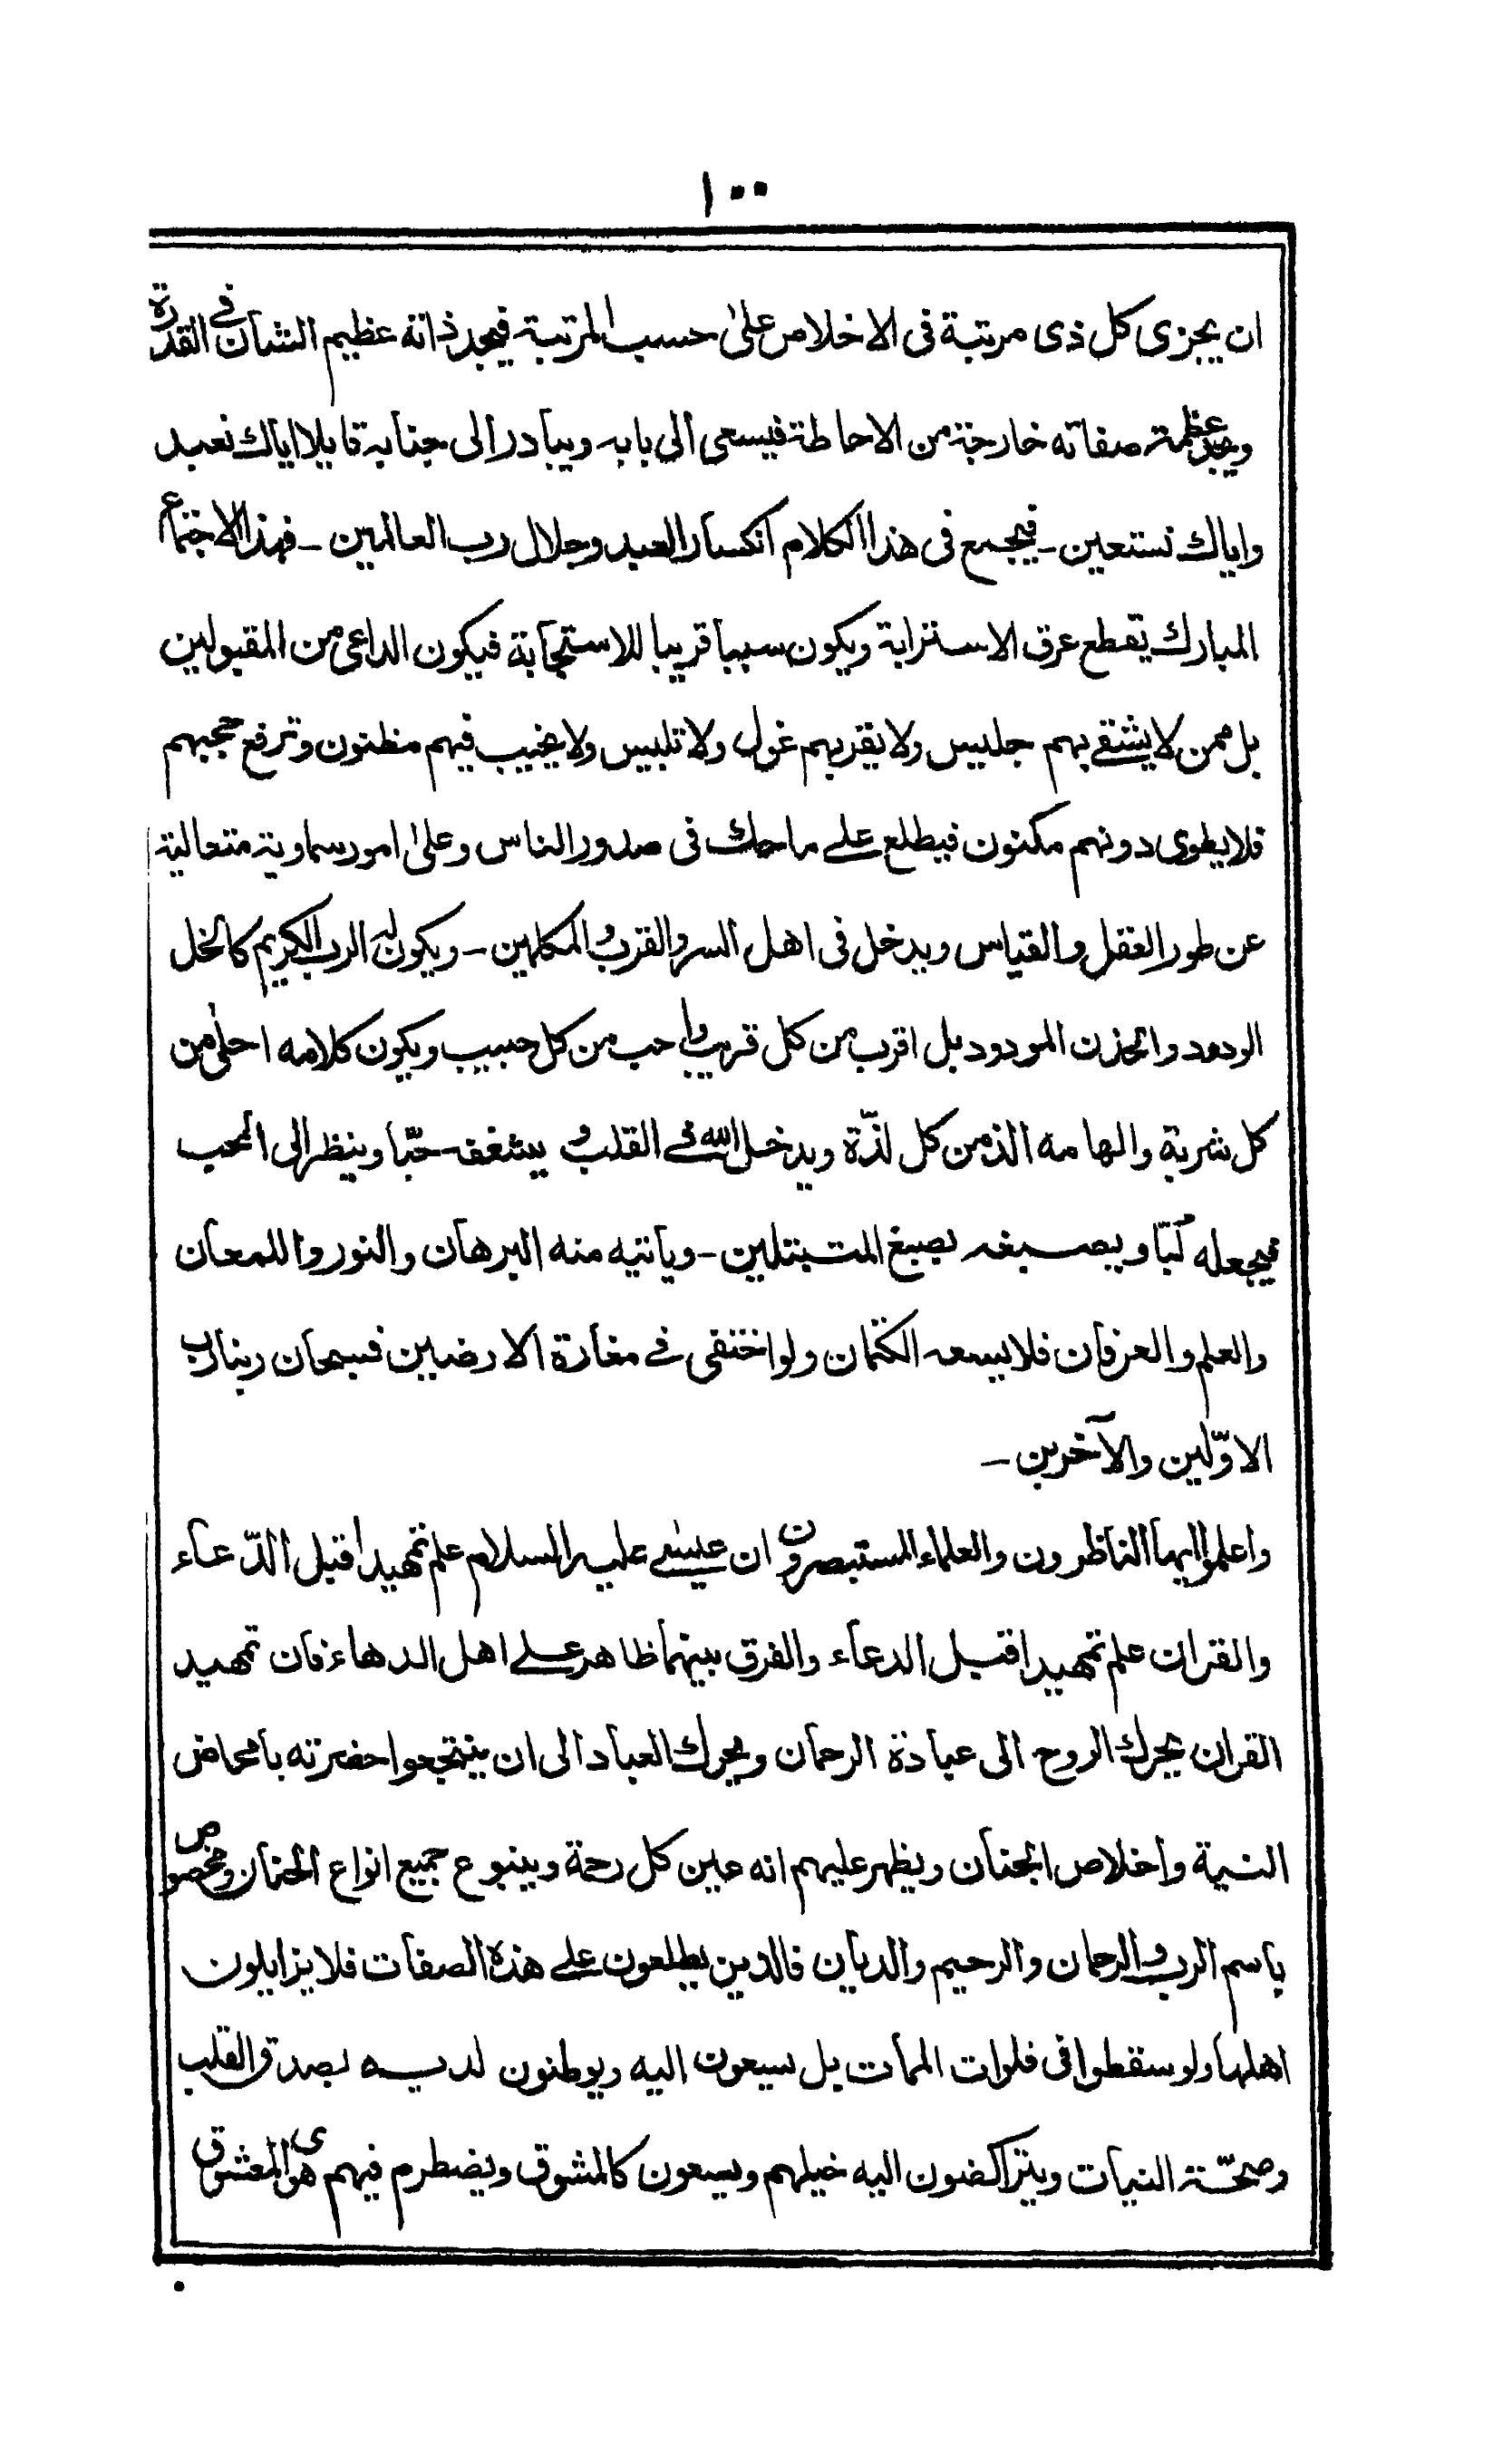 ١٠٠
ان يجزى كل ذى مرتبة فى الاخلاص علىٰ حسب المرتبة فيجد ذاته عظيم الشان فى القدرة
ويجد عظمة صفاته خارجة من الاحاطة فيسعى الى بابه ويبادر الى جنابه قايلا اياك نعبد
واياك نستعين ـ فيجمع فى هذا الكلام انكسار العبد وجلال رب العالمين ـ فهذا الاجتماع
المبارك يقطع عرق الاسترابة ويكون سببا قريبا للاستجابة فيكون الداعى من المقبولين
بل ممن لا يشقے بهم جليس ولا يقربهم غول ولا تلبيس ولا يخيب فيهم مظنون وترفع حجبهم
فلا يطوى دونهم مكنون فيطلع علے ما حك فى صدور الناس وعلىٰ امور سماوية متعالية
عن طور العقل والقياس ويدخل فى اهل السر والقرب والمكلمين ـ ويكون له الرب الكريم كالخل
الودود والخدن المودود بل اقرب من كل قريب واحب من كل حبيب ويكون كلامه احلىٰ من
كل شربة والهامه الذ من كل لذّة ويدخل الله فے القلب و يشغفه حبّا وينظر الى المحب
فيجعله لُبّا ويصبغه بصبغ المتبتلين ـ وياتيه منه البرهان والنور واللمعان
والعلم والعرفان فلا يسعه الكتمان ولو اختفى فے مغارة الارضين فسبحان ربنا رب
الاوّلين والآخرين ـ
واعلموا ايها الناظرون والعلماء المستبصرون ان عيسٰے عليه السلام علم تمهيدا قبل الدّعاء
والقران علم تمهيدا قبل الدعاء والفرق بينهما ظاهر علے اهل الدهاء فان تمهيد
القران يحرك الروح الى عبادة الرحمان ويحرك العباد الى ان ينتجعوا حضرته بامحاض
النية واخلاص الجنان ويظهر عليهم انه عين كل رحمة وينبوع جميع انواع الحنان ومخصوص
باسم الرب والرحمان والرحيم والديان فالذين يطلعون علے هذه الصفات فلا يزايلون
اهلها ولو سقطوا فى فلوات الممات بل يسعون اليه ويوطنون لديه بصدق القلب
وصحّة النيات ويتراكضون اليه خيلهم ويسعون كالمشوق ويضطرم فيهم هوى المعشوق